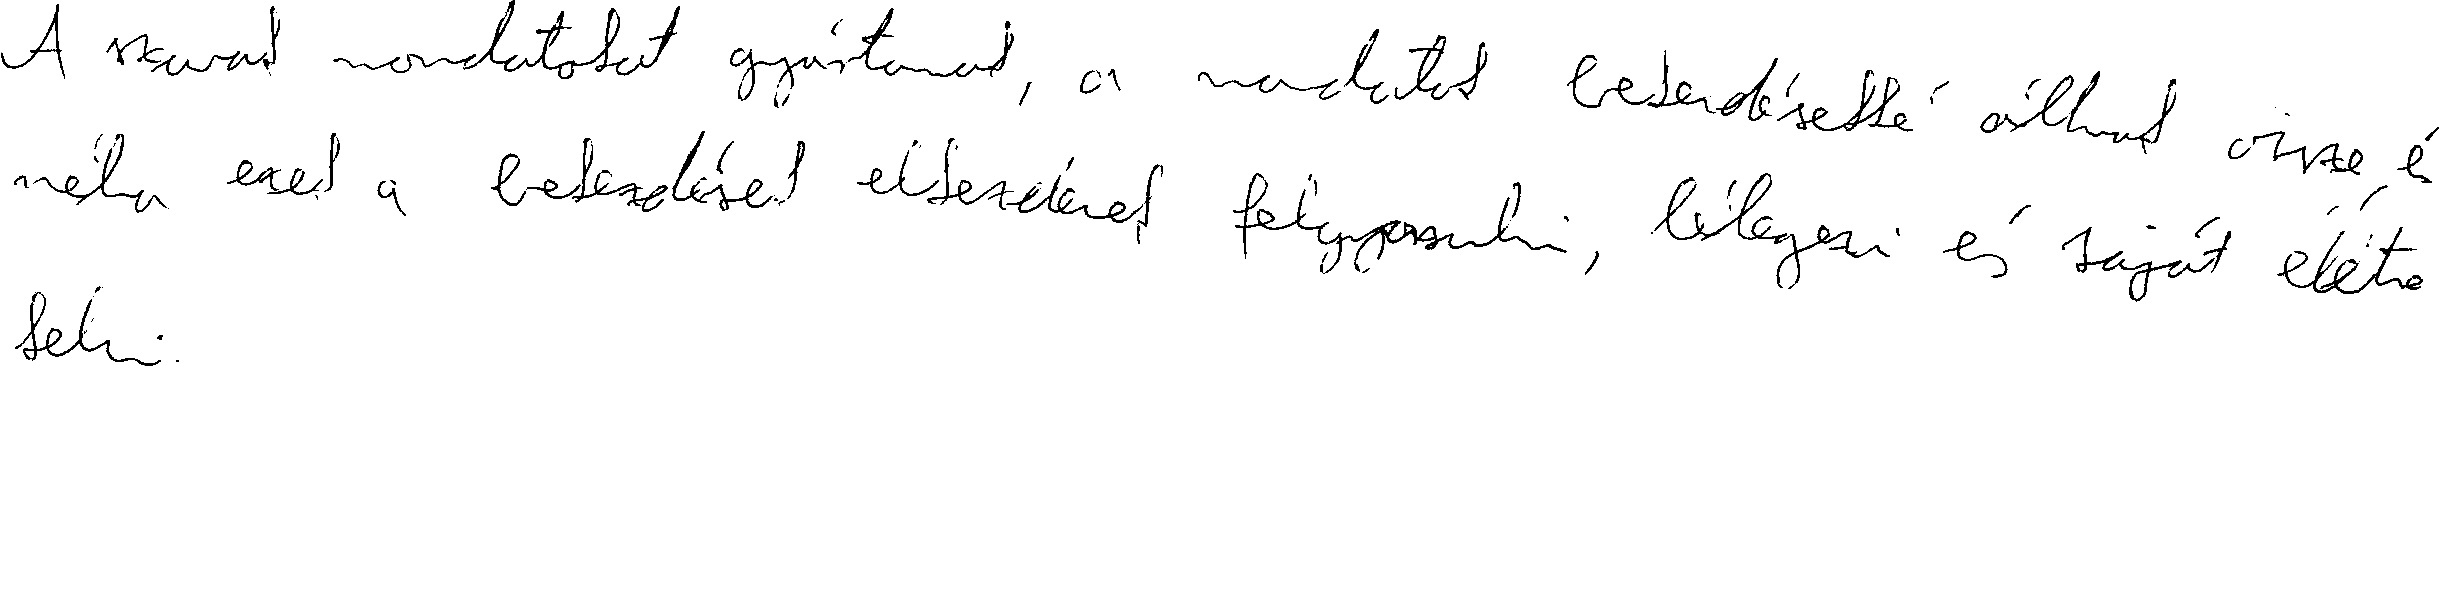 A szavak mondatokat gyártanak, a mondatok beszerdésekké állnak össze és
néha ezek a beszédések elkezdenek felgyorsulni, lélegezni és saját életre
kelni.